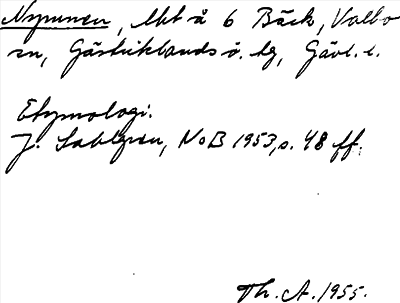 Nypunen, lht å 6 Bäck, Valbo
sn, Gästriklands ö. tg, Gävl. l.
Etymologi.
J. Sahlgren, NoB 1953, s. 48 ff.
Th. A. 1955.